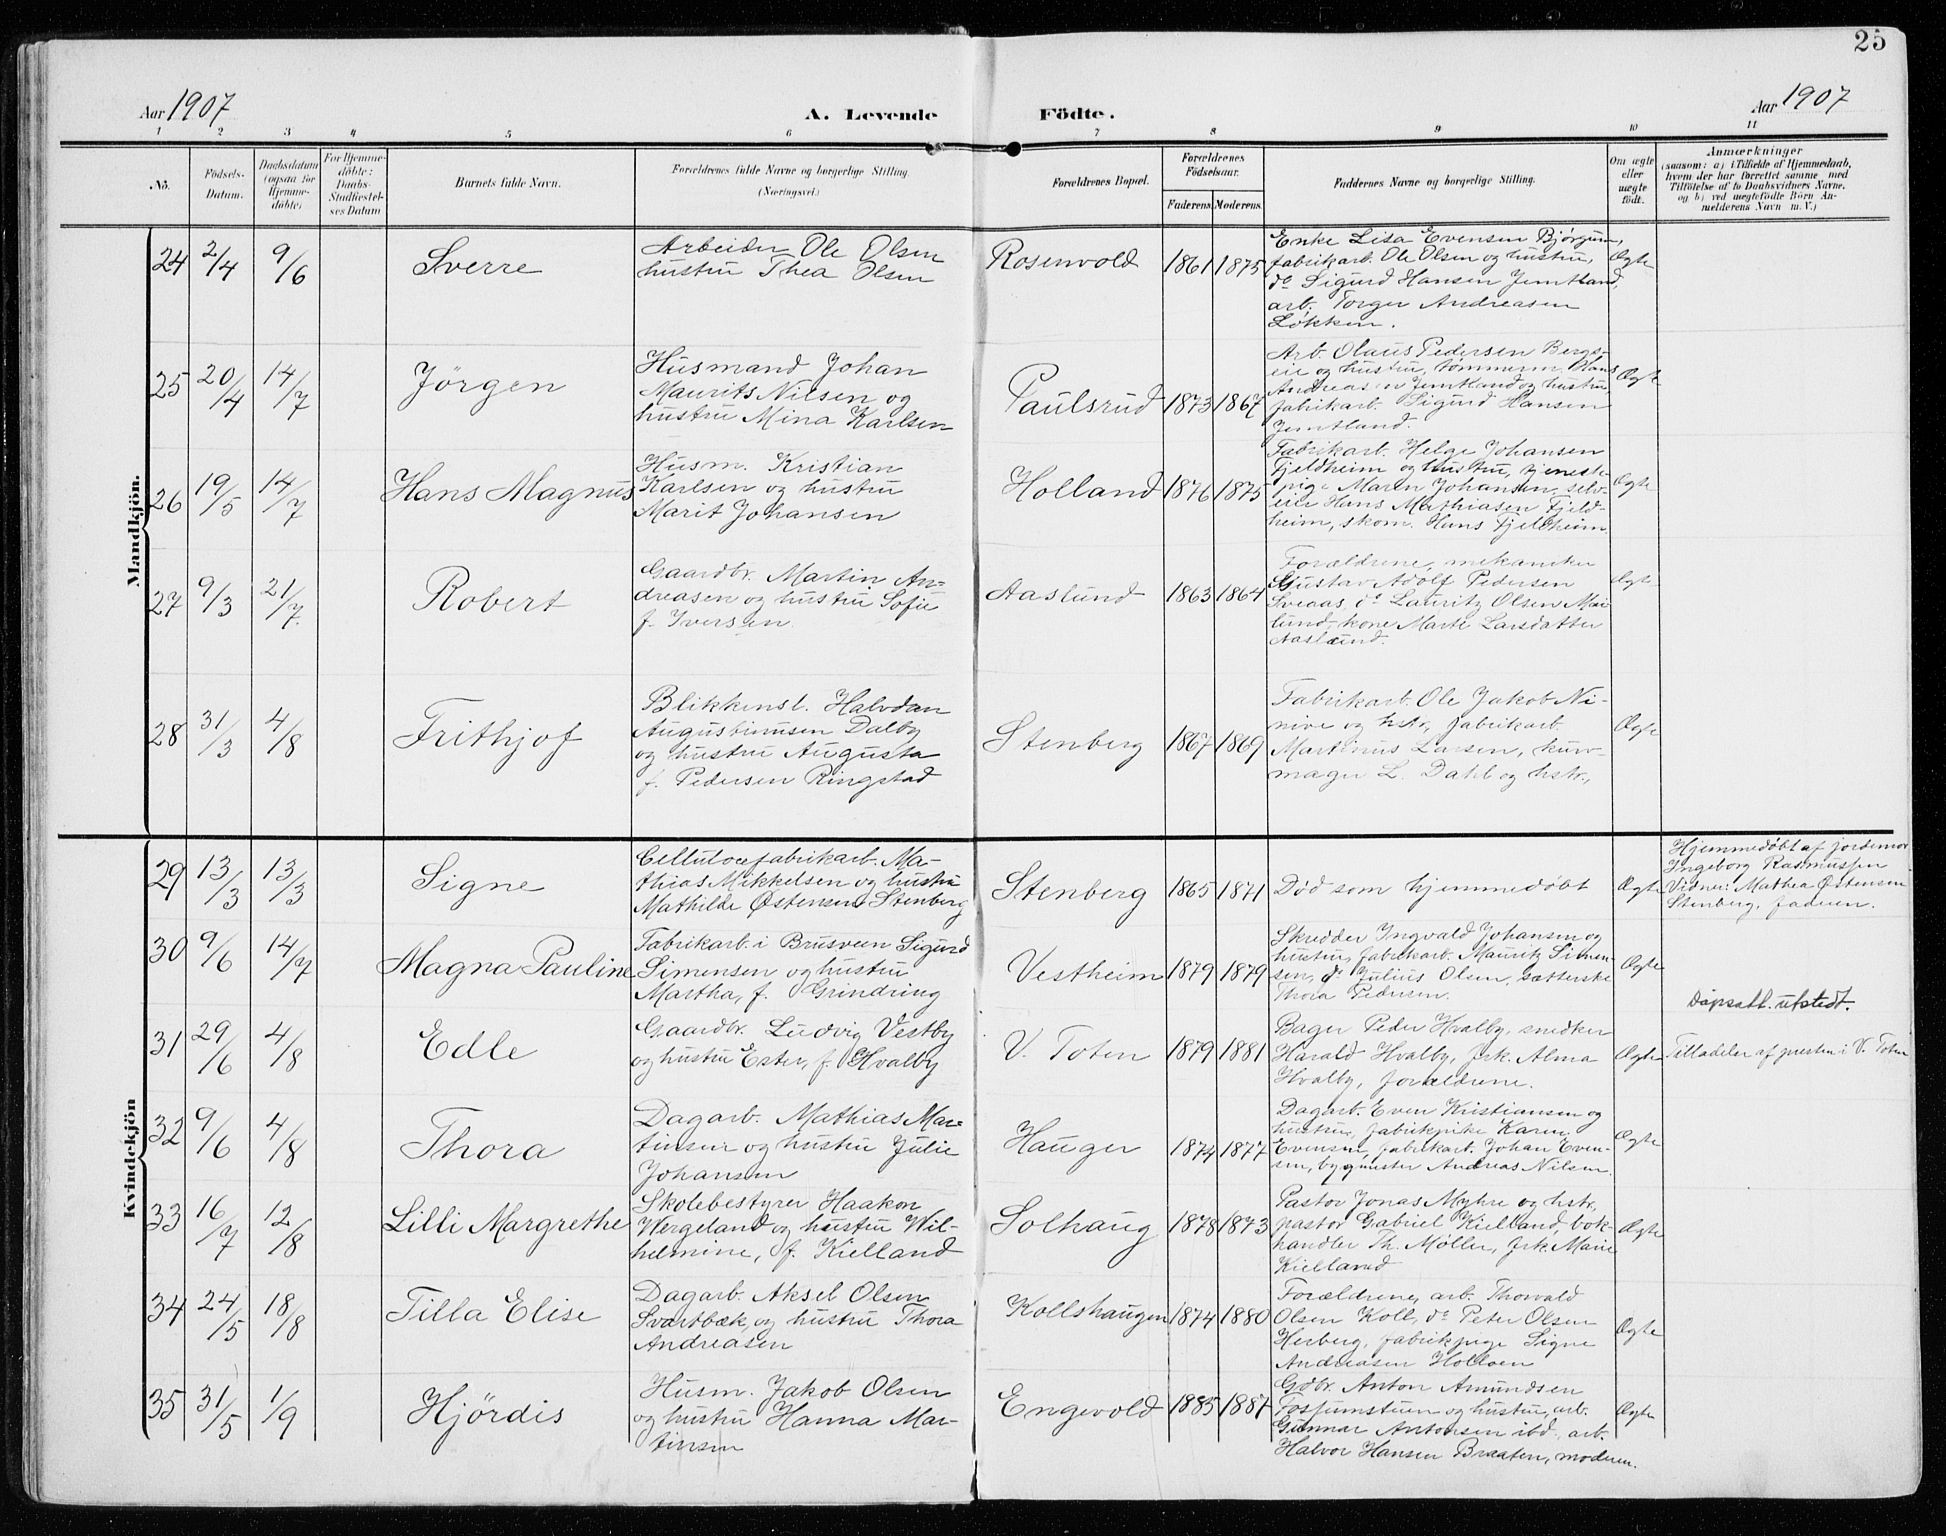 25
Aar 1907
A. Levende Födte.
Aar 1907
1 2 3 4 5 6 7 8 9 10 11
No.
Födsels-
Datum.
Daabsdatum
(ogsaa for
Hjemme-
döbte)
For Hjemme-
döbte:
Daabs-
Stadfæstel-
ses Datum
Barnets fulde Navn.
Forældrenes fulde Navne og borgerlige Stilling.
(Næringsvei.)
Forældrenes Bopæl.
Forældrenes
Födselsaar.
Faderens.
Moderens.
Faddernes Navne og borgerlige Stilling.
Om ægte
eller
uægte
födt.
Anmærkninger
(saasom: a) i Tilfælde af Hjemmedaab,
hvem der har forrettet samme med
Tilföielse af to Daabsvidners Navne,
og b) ved uægtefödte Börn An-
melderens Navn m. V.)
Mandkjön.
24
2/4
9/6
Sverre
Arbeider Ole Olsen
hustru Thea Olsen
Rosenvold
1861
1875
Enke Lisa Evensen Bjørgum,
fabrikarb. Ole Olsen og hustru,
do Sigurd Hansen Jemtland,
arb. Torger Andreasen
Løkken.
Ægte
25
20/4
14/7
Jörgen
Husmand Johan
Maurits Nilsen og
hustru Mina Karlsen
Paulsrud
1873
1867
Arb. Olaus Pedersen Bergs-
eie og hustru, tømmerm. Hans
Andreasen Jemtland og hustru,
fabrikarb. Sigurd Hansen
Jemtland.
Ægte
26
19/5
14/7
Hans Magnus
Husm. Kristian
Karlsen og hustru
Marit Johansen
Holland
1876
1875
Fabrikarb. Helge Johansen
Fjeldheim og hustru, tjeneste-
pige Maren Johansen, selv-
eier Hans Mathiasen Fjeld-
heim, skom. Hans Fjeldheim
Ægte
27
9/3
21/7
Robert
Gaardbr. Martin An-
dreasen og hustru Sofie
f. Iversen.
Aaslund
1863
1864
Forældrene, mekaniker
Gustav Adolf Pedersen
Sveaas, do Lauritz Olsen Mai-
lund, kone Marte Larsdatter
Aaslund.
Ægte
28
31/3
4/8
Frithjof
Blikkensl. Halvdan
Augustinusen Dalby
og hustru Augusta
f. Pedersen Ringstad
Stenberg
1867
1869
Fabrikarb. Ole Jakob Ni-
nive og hstr., fabrikarb.
Martinus Larsen, kurv-
mager L. Dahl og hstr.,
Ægte
Kvindekjön
29
13/3
13/3
Signe
Cellulosefabrikarb. Ma-
thias Mikkelsen og hustru
Mathilde Østensen Stenberg
Stenberg
1865
1871
Død som hjemmedøbt
Ægte
Hjemmedøbt af jordemor
Ingeborg Rasmussen
Vidner: Mathea Østensen
Stenberg, faderen.
30
9/6
14/7
Magna Pauline
Fabrikarb. i Brusveen Sigurd
Simensen og hustru
Martha, f. Grindring
Vestheim
1879
1879
Skredder Ingvald Johansen og
hustru, fabrikarb. Mauritz Simen-
sen, do Julius Olsen, sætterske
Thora Pedersen.
Ægte
Dåpsatt. utstedt.
31
29/6
4/8
Edle
Gaardbr. Ludvig Vestby
og hustru Ester, f. Hvalby
V. Toten
1879
1881
Bager Peder Hvalby, snedker
Harald Hvalby, frk. Alma
Hvalby, forældrene.
Ægte
Tilladelse af presten i V. Toten
32
9/6
4/8
Thora
Dagarb. Mathias Mar-
tinsen og hustru Julie
Johansen
Hauger
1874
1877
Dagarb. Even Kristiansen og
hustru, fabrikpike Karen
Evensen, fabrikarb. Johan Even-
sen, bygmester Andreas Nilsen.
Ægte
33
16/7
12/8
Lilli Margrethe
Skolebestyrer Haakon
Wergeland og hustru Wil-
helmine, f. Kielland
Solhaug
1878
1873
Pastor Jonas Myhre og hstr,
pastor Gabriel Kielland, bok-
handler Th. Møller, frk. Marie
Kielland
Ægte
34
24/5
18/8
Tilla Elise
Dagarb. Aksel Olsen
Svartbæk og hustru Thora
Andreasen
Kollshaugen
1874
1880
Forældrene, arb. Thorvald
Olsen Koll, do Peter Olsen
Herberg, fabrikpige Signe
Andreasen Holloen
Ægte
35
31/5
1/9
Hjördis
Husm. Jakob Olsen
og hustru Hanna Mar-
tinsen
Engevold
1885
1887
Gdbr. Anton Amundsen
Fossumstuen og hustru, arb.
Gunnar Antonsen ibd, arb.
Halvor Hansen Braaten, moderen.
Ægte